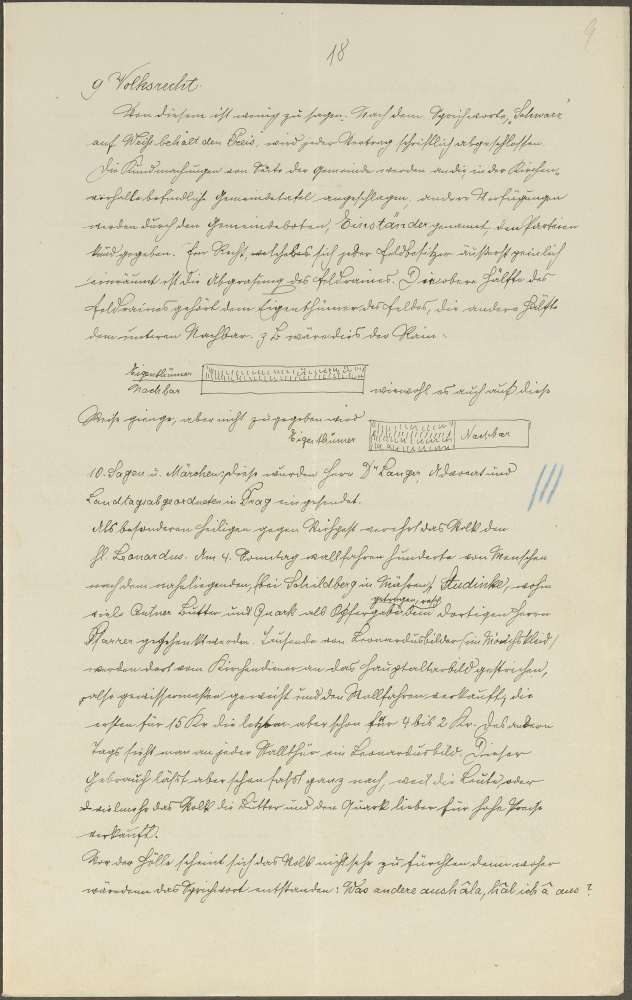 18
9
9 Volksrecht.
Von diesem ist wenig zu sagen. Nach dem Sprichworte, „Schwarz
auf Weiß behält den Preis, wird jeder Vertrag schriftlich abgeschlossen.
Die Kundmachungen von Seite der Gemeinde werden an die in der Kirchen-
befindliche Gemeindetafel angeschlagen, andere Verfügungen
werden durch den Gemeindeboten, Einständer genannt, den Parteien
kund gegeben. Ein Recht, welches sich jeder Feldbesitzer äußerst peinlich
einräumt ist die Abgrasung des Feldraines. Die obere Hälfte des
Feldraines gehört dem Eigenthümer des Feldes, die andere Hälfte
dem unteren Nachbar. z B wäre dies der Rain:
Eigenthümer
Nachbar
wiewohl es auch auf diese
Weise gienge, aber nicht zugegeben wird
Eigenthümer
Nachbar
10. Sagen u. Märchen, diese wurden Herrn Dr Langer, Advocat und
Landtagsabgeordneten in Prag eingesendet.
Als besonderen Heiligen gegen Viehpest verehrt das Volk den
hl. Leonardus. Am 4. Sonntag wallfahren hunderte von Menschen
nach dem naheliegenden, (bei Schildberg in Mähren), Studinke, wohin
viele Centner Butter und Quark als Opfergaben dortigen Herrn
getragen, resp.
Pfarrer geschenkt werden. Tausende von Leonardusbilder (im Mönchskleid)
werden dort vom Kirchendiener an das Hauptaltarbild gestrichen,
also gewissermaßen geweiht und den Wallfahrern verkauft, die
ersten für 15 Kr die letzten aber schon für 4 bis 2 Kr. Des andern
Tags sieht man an jeder Stallthür ein Leonardusbild. Dieser
Gebrauch läßt aber schon fast ganz nach, weil die Leute, oder
vielmehr das Volk die Butter und den Quark lieber für hohe Preise
verkauft.
Vor der Hölle scheint sich das Volk nicht sehr zu fürchten denn woher
wäre denn das Sprichwort entstanden: Was andere aushâla, hâl ich â aus?